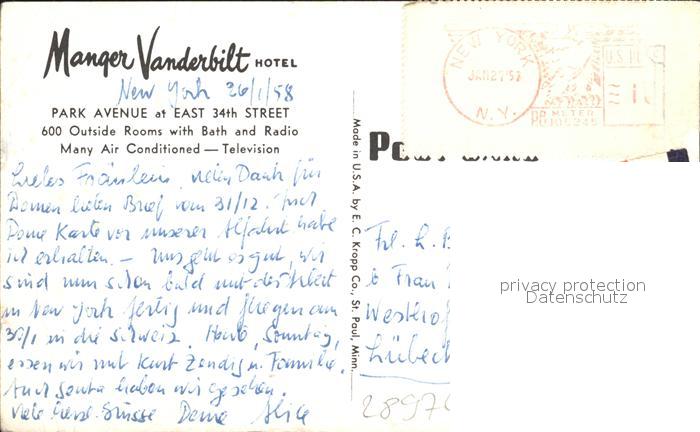 Manger Vanderbilt HOTEL
New York 26/1/58
PARK AVENUE at EAST 34th STREET
600 Outside Rooms with Bath and Radio
Many Air Conditioned — Television
Liebes Fräulein, vielen Dank für
Deinen lieben Brief vom 31/12. Auch
Deine Karte vor unserer Abfahrt habe
ich erhalten. — Uns geht es gut, wir
sind nun schon bald mit der Arbeit
in New York fertig und fliegen am
30/1 in die Schweiz. Heute, Sonntag,
essen wir mit Kurt Zendig u. Familie.
Auch haben wir gesehen.
Viele herzl. Grüsse Deine Alice
Made in U.S.A. by E. C. Kropp Co., St. Paul, Minn.
NEW YORK
JAN 27 '57
N.Y.
U.S.
PB METER
Frl. L.
b Frau
Westhof
Lübeck
privacy protection
Datenschutz